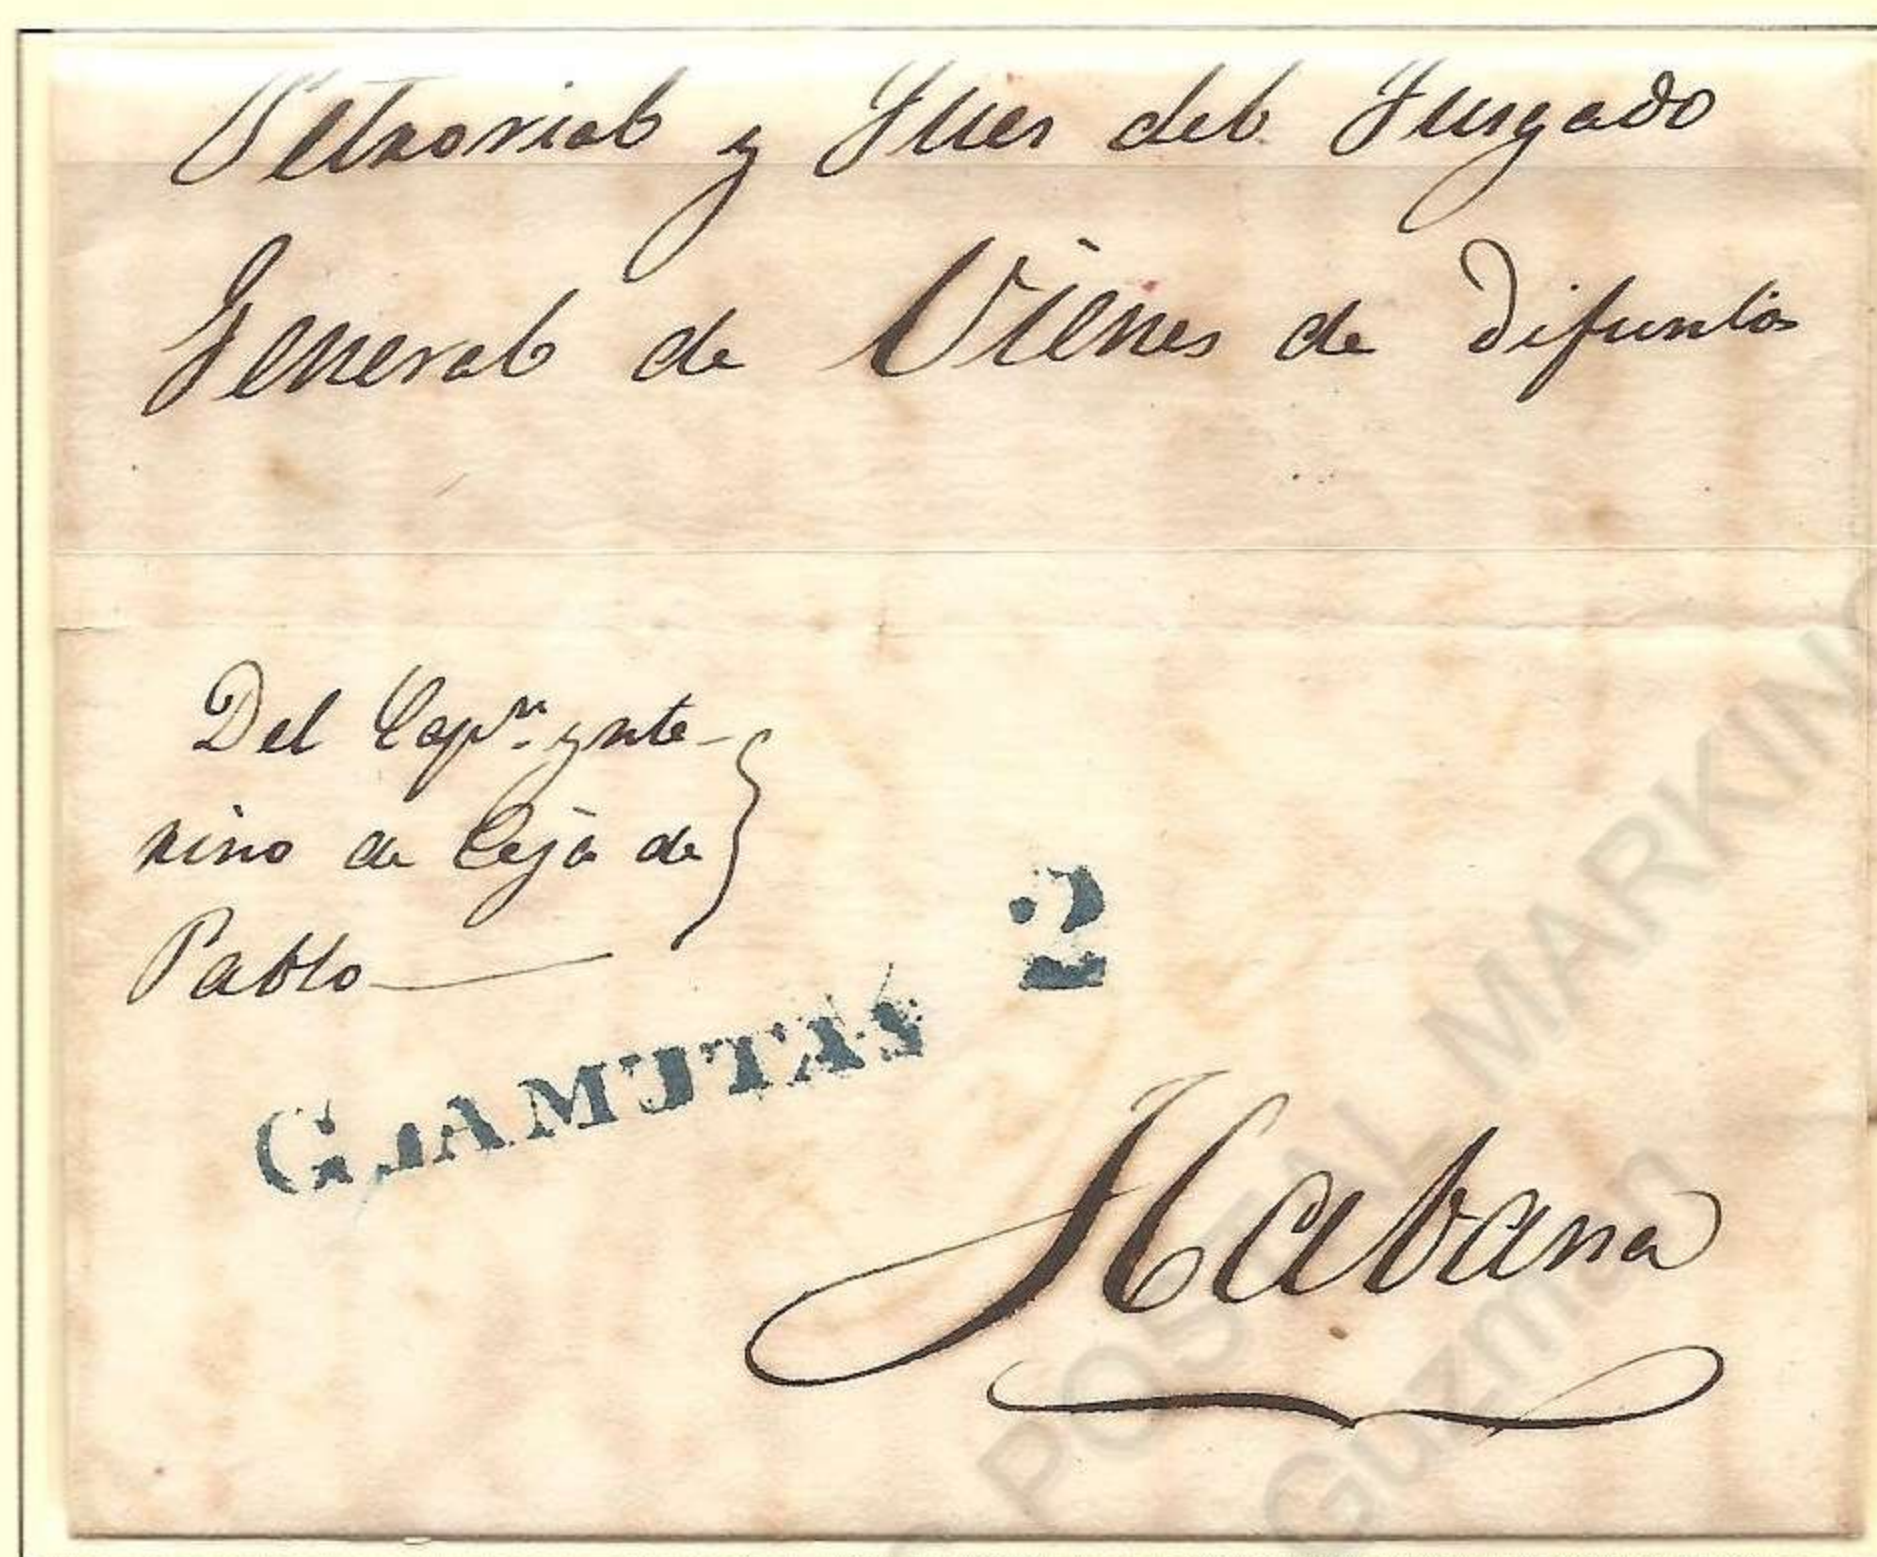 Petrorial y Jues del Jusgado
General de Vienes de Difuntos
Del Capn. ynte-
rino de Ceja de
Pablo
2
GUAMUTAS
Habana
POSTAL MARKING
Guzman